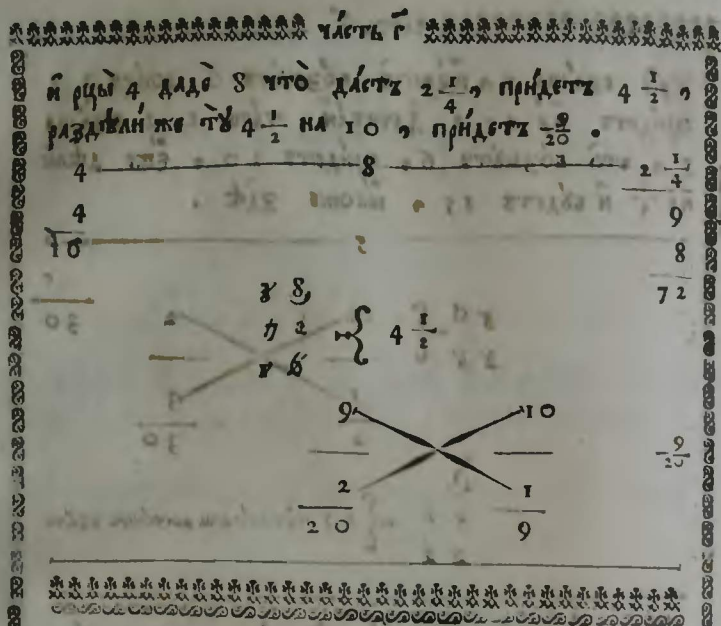 ча́сть г҃
и҆ рцы̀ 4 дадѐ 8 что̀ да́стъ 2 1/4, прїи́детъ 4 1/2,
раздѣли́ же тꙋ̀ 4 1/2 на 10, прїи́детъ 9/20 .
4 8 2 1/4
4 9
16 8
72
8
4 1/2
9 10
9/20
2 1
20 9